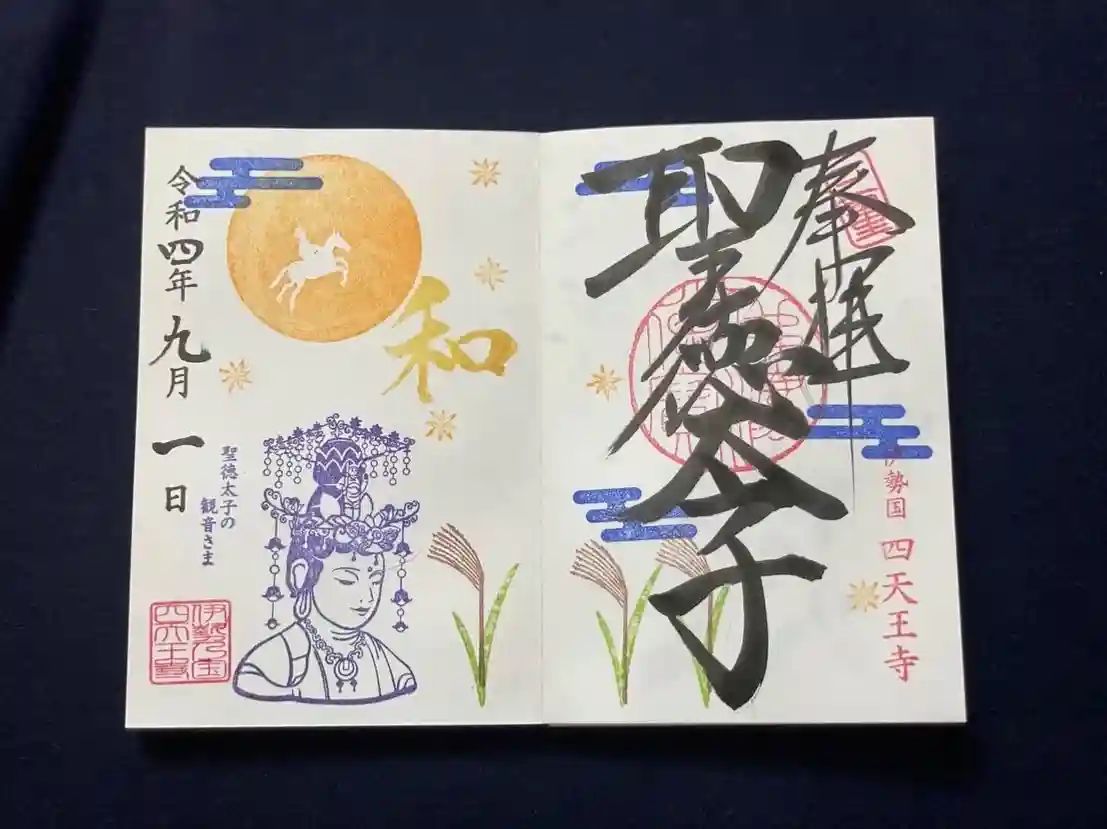 奉拝
聖徳太子
伊勢国 四天王寺
和
令和四年 九月 一日
聖徳太子の
観音さま
伊勢国
四天王寺